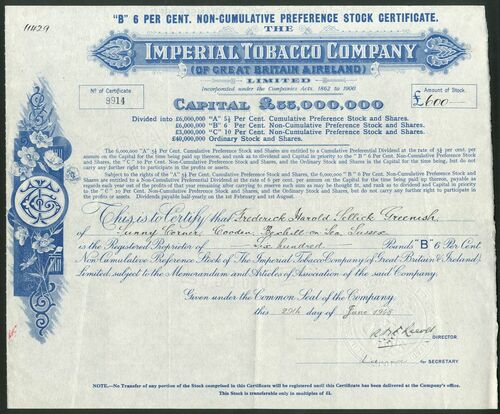 "B" 6 PER CENT. NON-CUMULATIVE PREFERENCE STOCK CERTIFICATE.
THE
IMPERIAL TOBACCO COMPANY
(OF GREAT BRITAIN & IRELAND)
LIMITED
Incorporated under the Companies Acts. 1862 to 1900
Nº of Certificate
9914
Amount of Stock.
£600
CAPITAL £55,000,000
Divided into £6,000,000 "A" 5½ Per Cent. Cumulative Preference Stock and Shares.
£6,000,000 "B" 6 Per Cent. Non-Cumulative Preference Stock and Shares.
£3,000,000 "C" 10 Per Cent. Non-Cumulative Preference Stock and Shares.
£40,000,000 Ordinary Stock and Shares.
The 6,000,000 "A" 5½ Per Cent. Cumulative Preference Stock and Shares are entitled to a Cumulative Preferential Dividend at the rate of 5½ per cent. per
annum on the Capital for the time being paid up thereon, and rank as to dividend and Capital in priority to the "B" 6 Per Cent. Non-Cumulative Preference Stock
and Shares, the "C" 10 Per Cent. Non-Cumulative Preference Stock and Shares, and the Ordinary Stock and Shares in the Capital for the time being, but do not
carry any further right to participate in the profits or assets.
Subject to the rights of the "A" 5½ Per Cent. Cumulative Preference Stock and Shares, the 6,000,000 "B" 6 Per Cent. Non-Cumulative Preference Stock and
Shares are entitled to a Non-Cumulative Preferential Dividend at the rate of 6 per cent. per annum on the Capital for the time being paid up thereon, payable as
regards each year out of the profits of that year remaining after carrying to reserve such sum as may be thought fit, and rank as to dividend and Capital in priority
to the "C" 10 Per Cent. Non-Cumulative Preference Stock and Shares, and the Ordinary Stock and Shares in the Capital, but do not carry any further right to participate in
profits or assets. Dividends payable half-yearly on the 1st February and 1st August.
This is to Certify that Frederick Harold Sellick Greenish
of Sunny Corner, Cooden, Bexhill on Sea, Sussex
is the Registered Proprietor of Six hundred Pounds "B" 6 Per Cent
Non-Cumulative Preference Stock of The Imperial Tobacco Company (of Great Britain & Ireland)
Limited subject to the Memorandum and Articles of Association of the said Company.
Given under the Common Seal of the Company,
this 29th day of June 1948
DIRECTOR
for SECRETARY
NOTE.—No Transfer of any portion of the Stock comprised in this Certificate will be registered until this Certificate has been delivered at the Company's office.
This Stock is transferable only in multiples of £1.